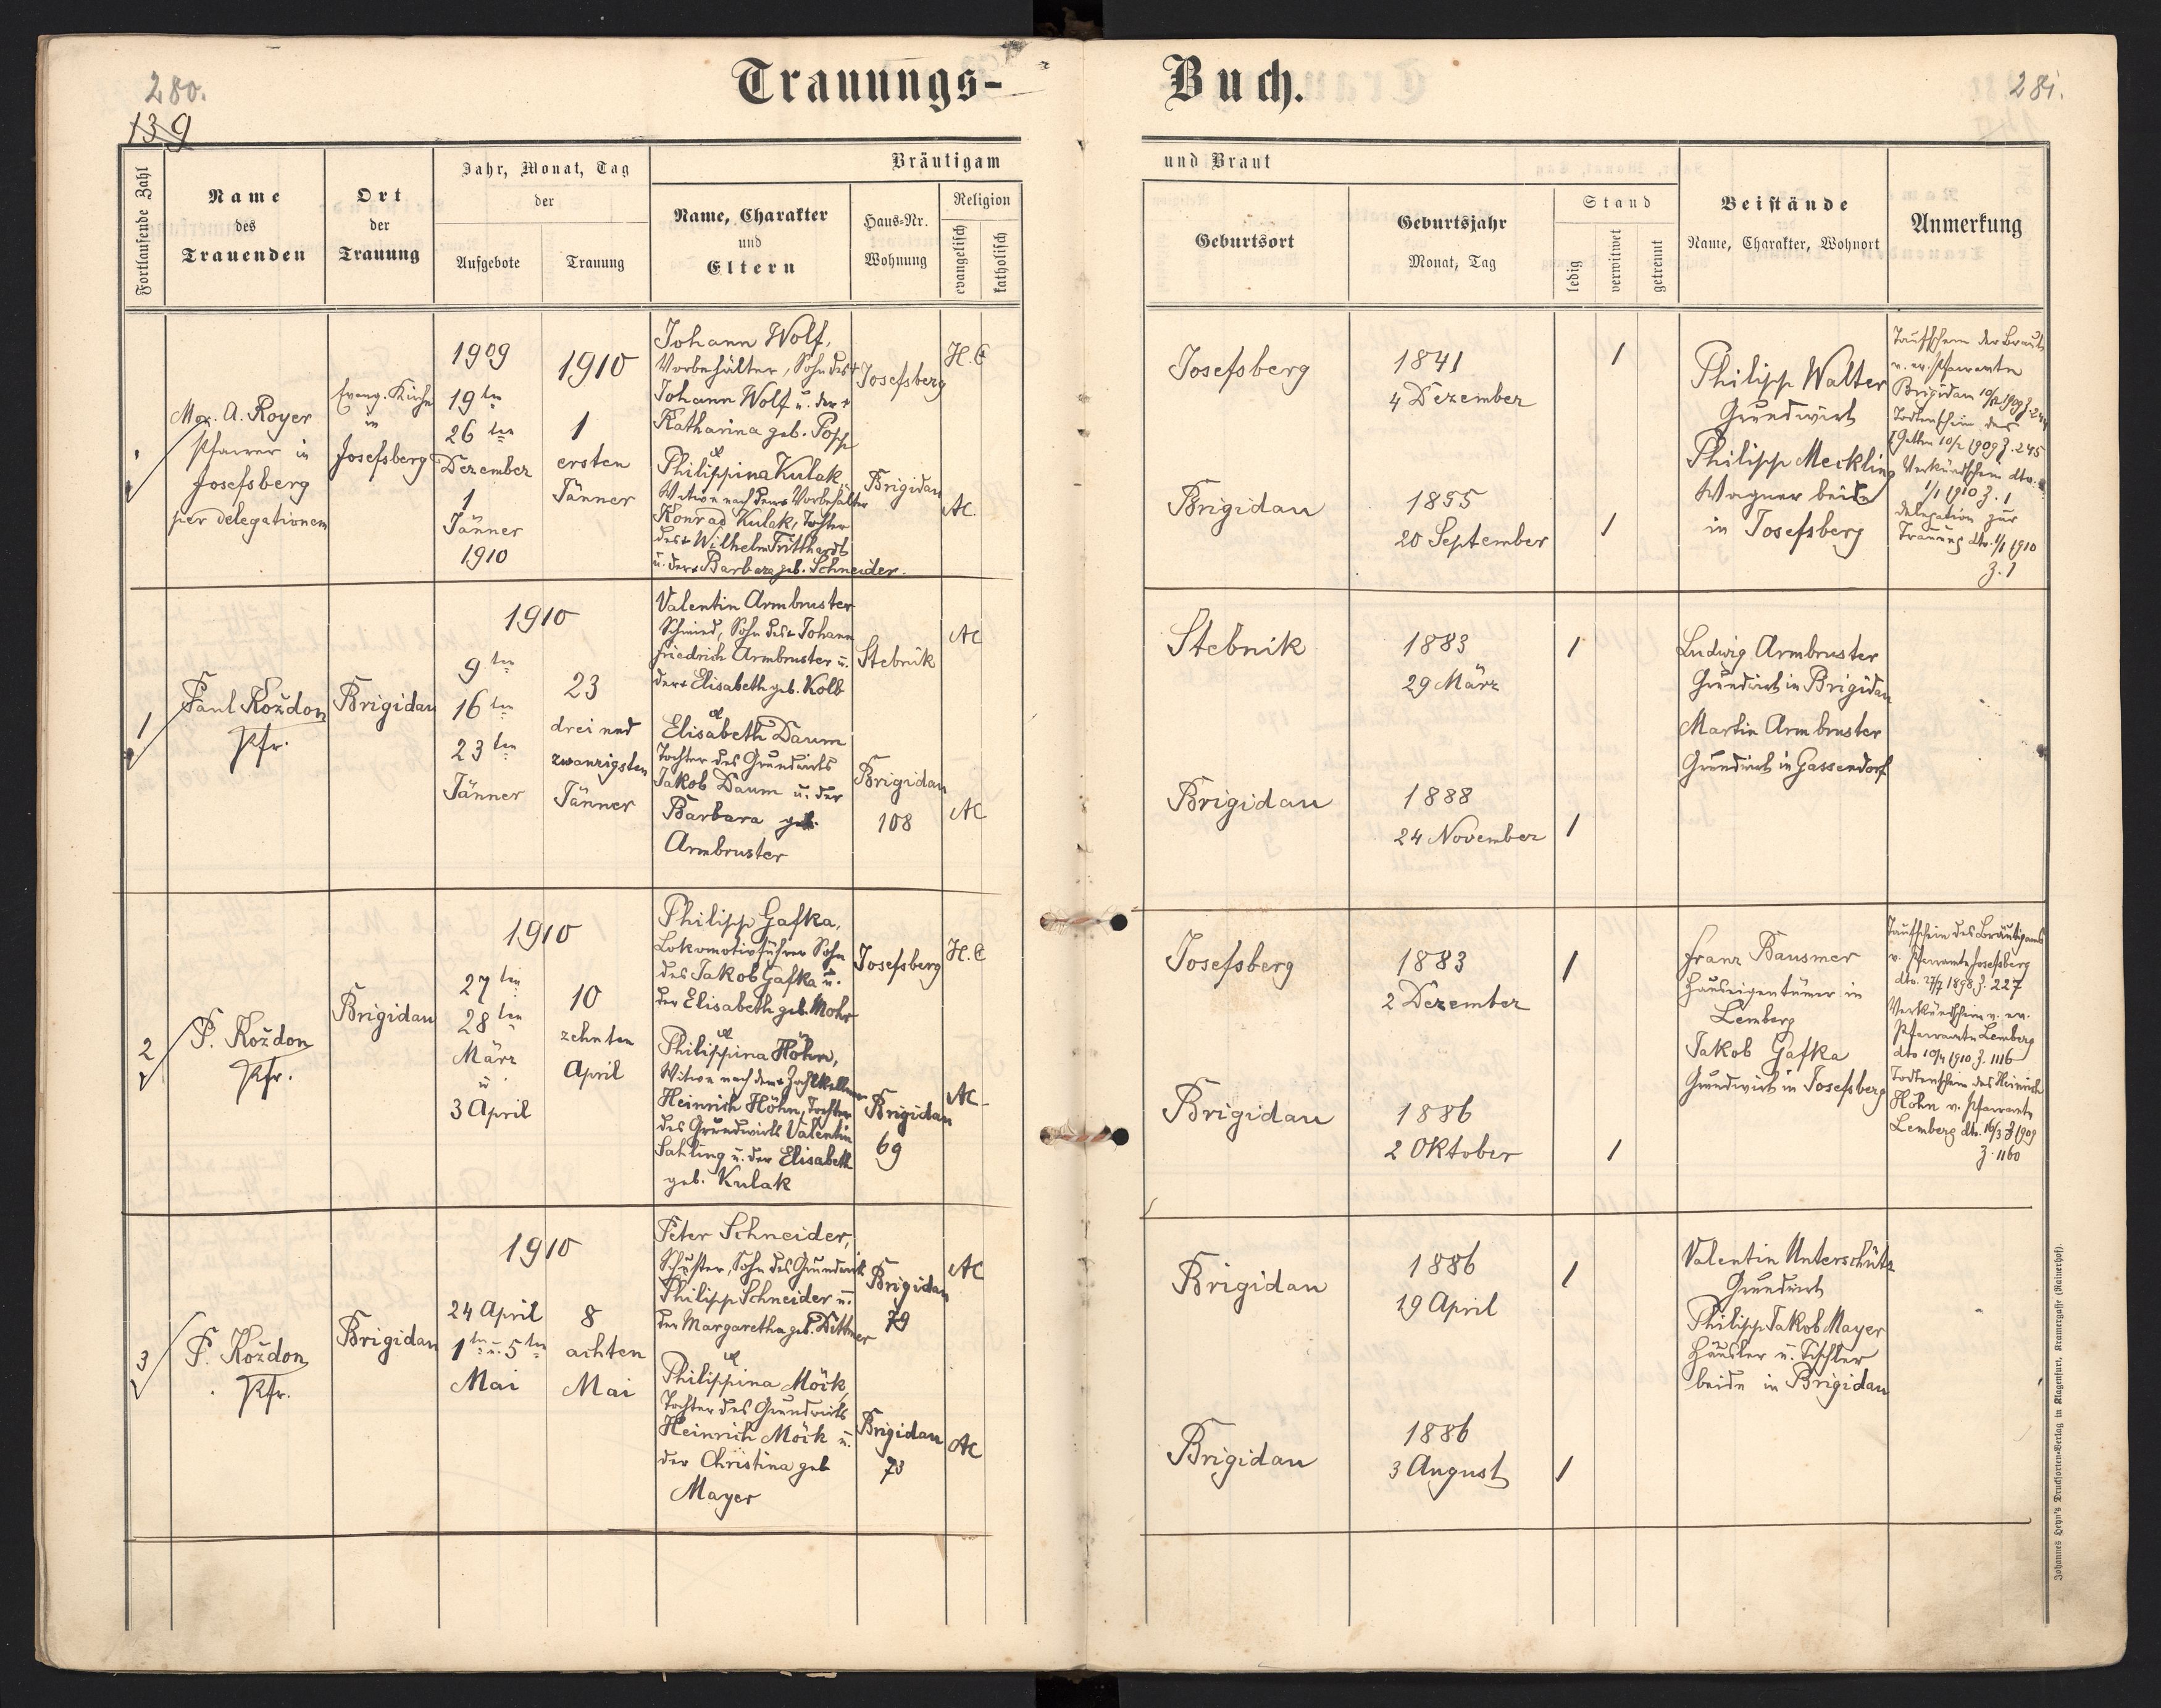 280.
139
Trauungs-
Buch.
281.
Fortlaufende Zahl
Name
des
Trauenden
Ort
der
Trauung
Jahr, Monat, Tag
der
Aufgebote
Trauung
Bräutigam
Name, Charakter
und
Eltern
Haus-Nr.
Wohnung
Religion
evangelisch
katholisch
und Braut
Geburtsort
Geburtsjahr
Monat, Tag
Stand
ledig
verwitwet
getrennt
Beistände
Name, Charakter, Wohnort
Anmerkung
Max. A. Royer
Pfarrer in
Josefsberg
per delegationem
Evang. Kirche
in
Josefsberg
1909
19ten
26ten
Dezember
1
Jänner
1910
1910
1
ersten
Jänner
Johann Wolf,
Vorbehälter, Sohn des +
Johann Wolf u. der +
Katharina geb. Popp
et
Philippina Kulak,
Witwe nach dem + Vorbehälter
Konrad Kulak, Tochter
des + Wilhelm Fritthardt
u. der + Barbara geb. Schneider.
Josefsberg
Brigidau
H.C
AC.
Josefsberg
Brigidau
1841
4 Dezember
1855
20 September
1
1
Philipp Walter
Grundwirt
Philipp Meckling
Wagner beide
in Josefsberg
Taufschein der Braut
v. ev. Pfarramte
Brigidau 10/12 1909 Z. 244
Todtenschein des
+ Gatten 10/12 1909 Z. 245
Verkündschein dto.
1/1 1910 Z. 1
delegation zur
Trauung dto. 1/1 1910
Z. 1
1
Paul Koždon
Pfr.
Brigidau
1910
9ten
16ten
23ten
Jänner
23
drei und
zwanzigsten
Jänner
Valentin Armbruster
Schmied, Sohn des + Johann
Friedrich Armbruster u.
der + Elisabeth geb. Kolb
et
Elisabeth Daum
Tochter des Grundwirts
Jakob Daum u. der
Barbara geb.
Armbruster
Stebnik
Brigidau
108
AC
AC
Stebnik
Brigidau
1883
29 März
1888
24 November
1
1
Ludwig Armbruster
Grundwirt in Brigidau
Martin Armbruster
Grundwirt in Gassendorf
2
P. Koždon
Pfr.
Brigidau
1910
27ten
28ten
März
u.
3 April
10
zehnten
April
Philipp Gafka,
Lokomotivführer Sohn
des Jakob Gafka u.
der Elisabeth geb. Mohr
et
Philippina Höhn,
Witwe nach dem + Zahlkellner
Heinrich Höhn, Tochter
des Grundwirts Valentin
Sahling u. der Elisabeth
geb. Kulak
Josefsberg
Brigidau
69
H.C
AC
Josefsberg
Brigidau
1883
2 Dezember
1886
2 Oktober
1
1
Franz Bausmer
Hauseigentümer in
Lemberg
Jakob Gafka
Grundwirt in Josefsberg
Taufschein des Bräutigams
v. Pfarramte Josefsberg
dto. 27/7 1898 Z. 227
Verkündschein v. ev.
Pfarramte Lemberg
dto 10/4 1910 Z. 1116
Todtenschein des Heinrich
Höhn v. Pfarramte
Lemberg dto. 16/3 1909
Z. 1160
3
P. Koždon
Pfr.
Brigidau
1910
24 April
1ten u. 5ten
Mai
8
achten
Mai
Peter Schneider,
Schuster, Sohn des Grundwirt
Philipp Schneider u.
der Margaretha geb. Dittmer
et
Philippina Möck,
Tochter des Grundwirts
Heinrich Möck u.
der Christina geb
Mayer
Brigidau
79
Brigidau
73
AC
AC
Brigidau
Brigidau
1886
19 April
1886
3 August
1
1
Valentin Unterschütz
Grundwirt
Philipp Jakob Mayer
Häusler u. Tischler
beide in Brigidau
Johannes Heyn's Drucksorten-Verlag in Klagenfurt, Kramergasse (Rainerhof).